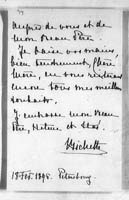 auprès de vous et de
mon beau Père.
Je baise vos mains,
bien tendrement, chère
Mère, en vous réitérant
encore tous mes meilleurs
souhaits.
J'embrasse mon beau
Père, Hélène et Stas.
Michette
18 Févr. 1895. Petersburg.